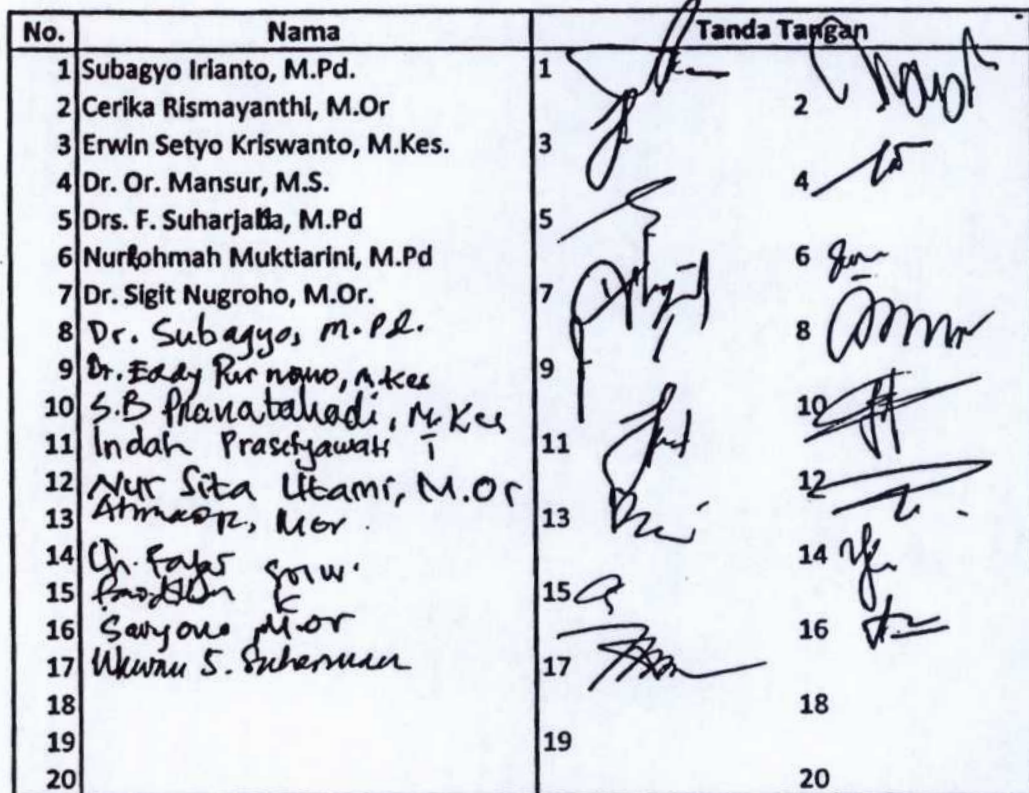 No. Nama Tanda Tangan
1 Subagyo Irianto, M.Pd. 1
2 Cerika Rismayanthi, M.Or 2
3 Erwin Setyo Kriswanto, M.Kes. 3
4 Dr. Or. Mansur, M.S. 4
5 Drs. F. Suharjana, M.Pd 5
6 Nurrohmah Muktiarini, M.Pd 6
7 Dr. Sigit Nugroho, M.Or. 7
8 Dr. Subagyo, M.Pd. 8
9 Dr. Eddy Purnomo, M.Kes 9
10 S.B Pranatahadi, M.Kes 10
11 Indah Prasetyawati T 11
12 Nur Sita Utami, M.Or 12
13 M.Or 13
14 Ch. Fajar 14
15 15
16 Saryono M.Or 16
17 Wawan S. Suherman 17
18 18
19 19
20 20